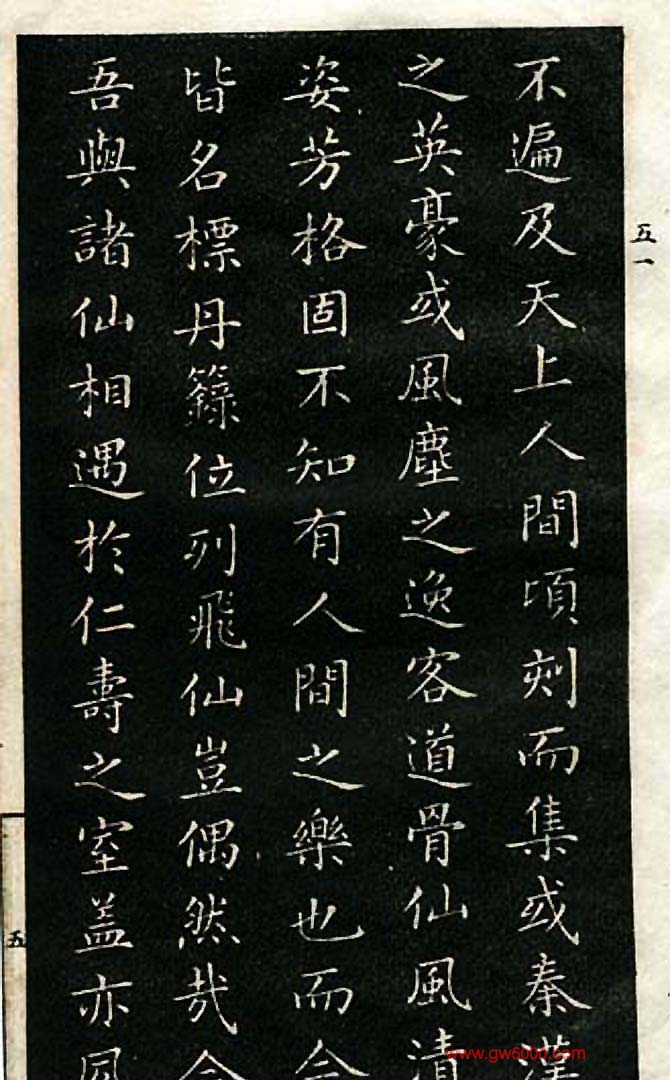 不遍及天上人間頃刻而集或秦漢
之英豪或風塵之逸客道骨仙風清
姿芳格固不知有人間之樂也而今
皆名標丹籙位列飛仙豈偶然哉今
吾與諸仙相遇於仁壽之室蓋亦同
五一
五
www.gw5000.com